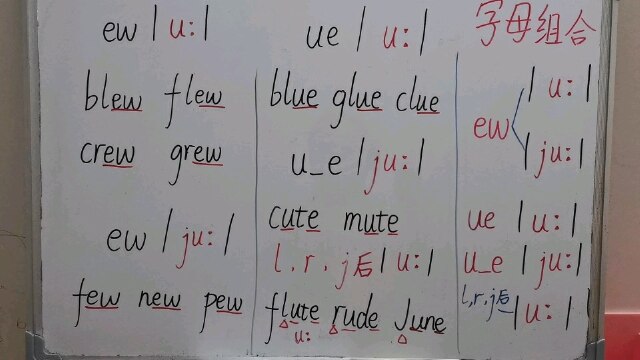 ew | u: |
blew flew
crew grew
ew | ju: |
few new pew
ue | u: |
blue glue clue
u_e | ju: |
cute mute
l, r, j后 | u: |
flute rude June
u:
字母组合
ew | u: |
| ju: |
ue | u: |
u_e | ju: |
l, r, j后 | u: |